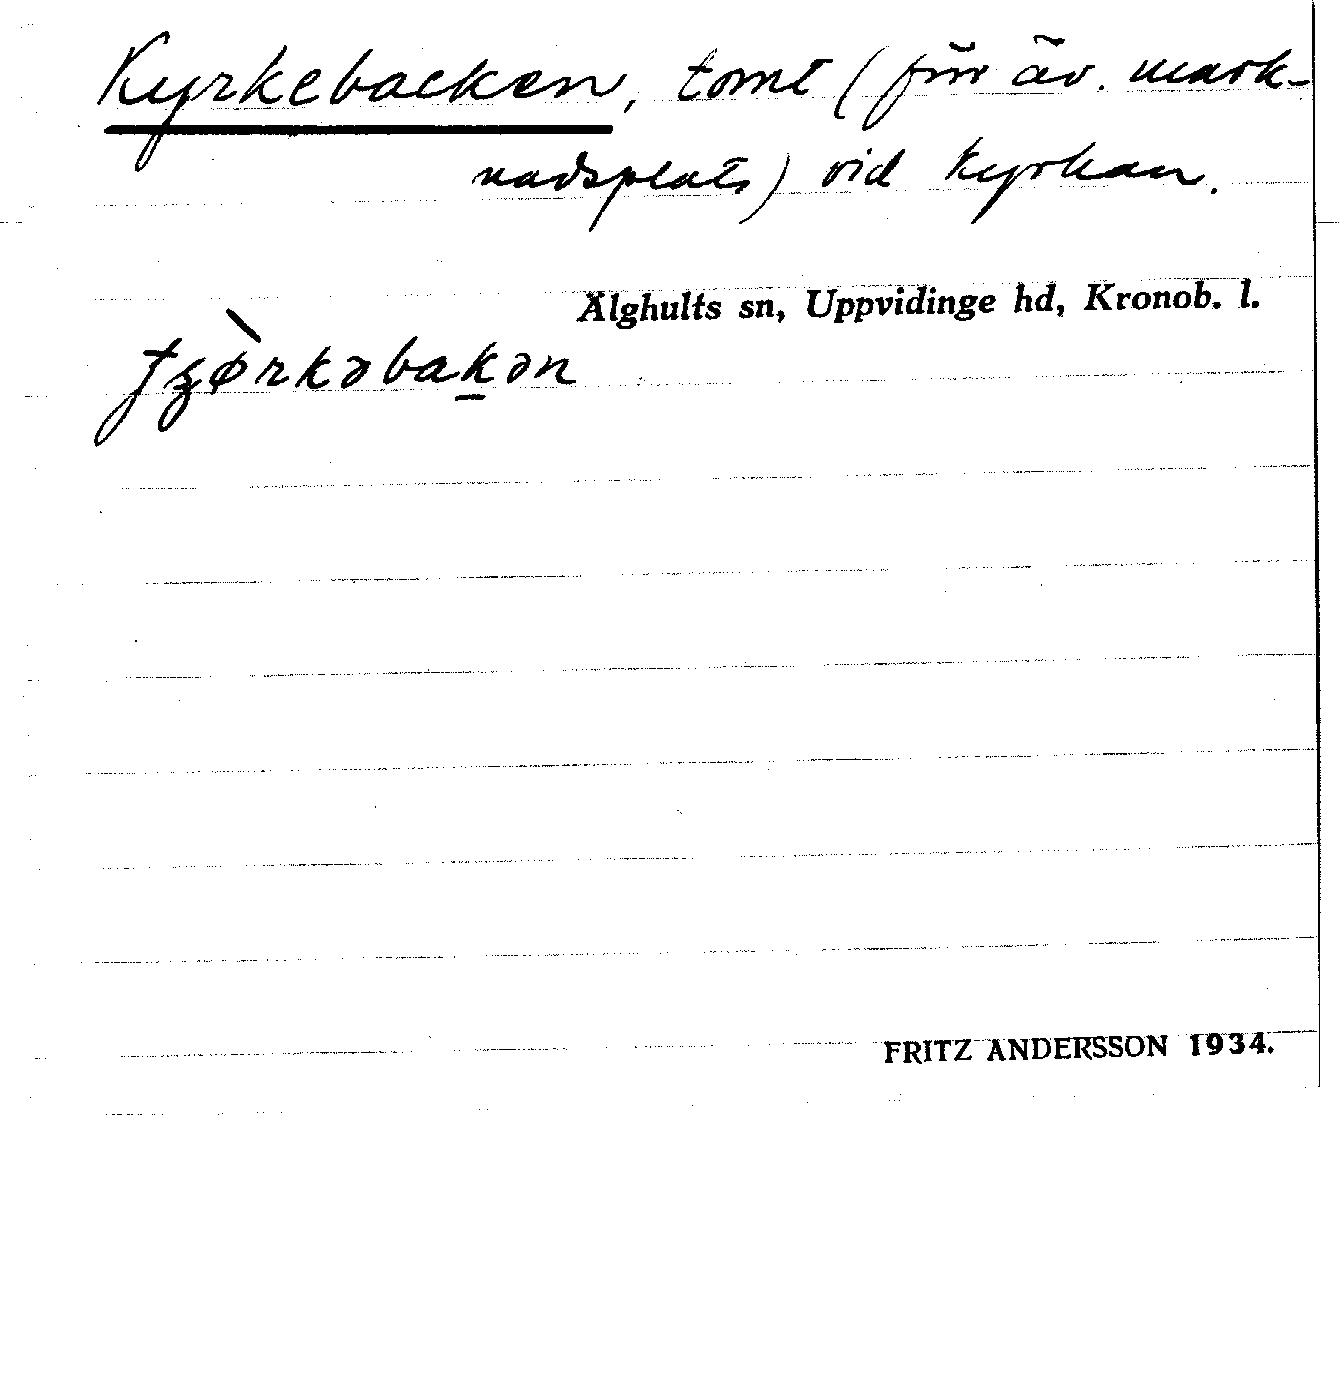 Kyrkebacken, tomt (förr äv. mark-
nadsplats) vid kyrkan.
Älghults sn, Uppvidinge hd, Kronob. l.
FRITZ ANDERSSON 1934.